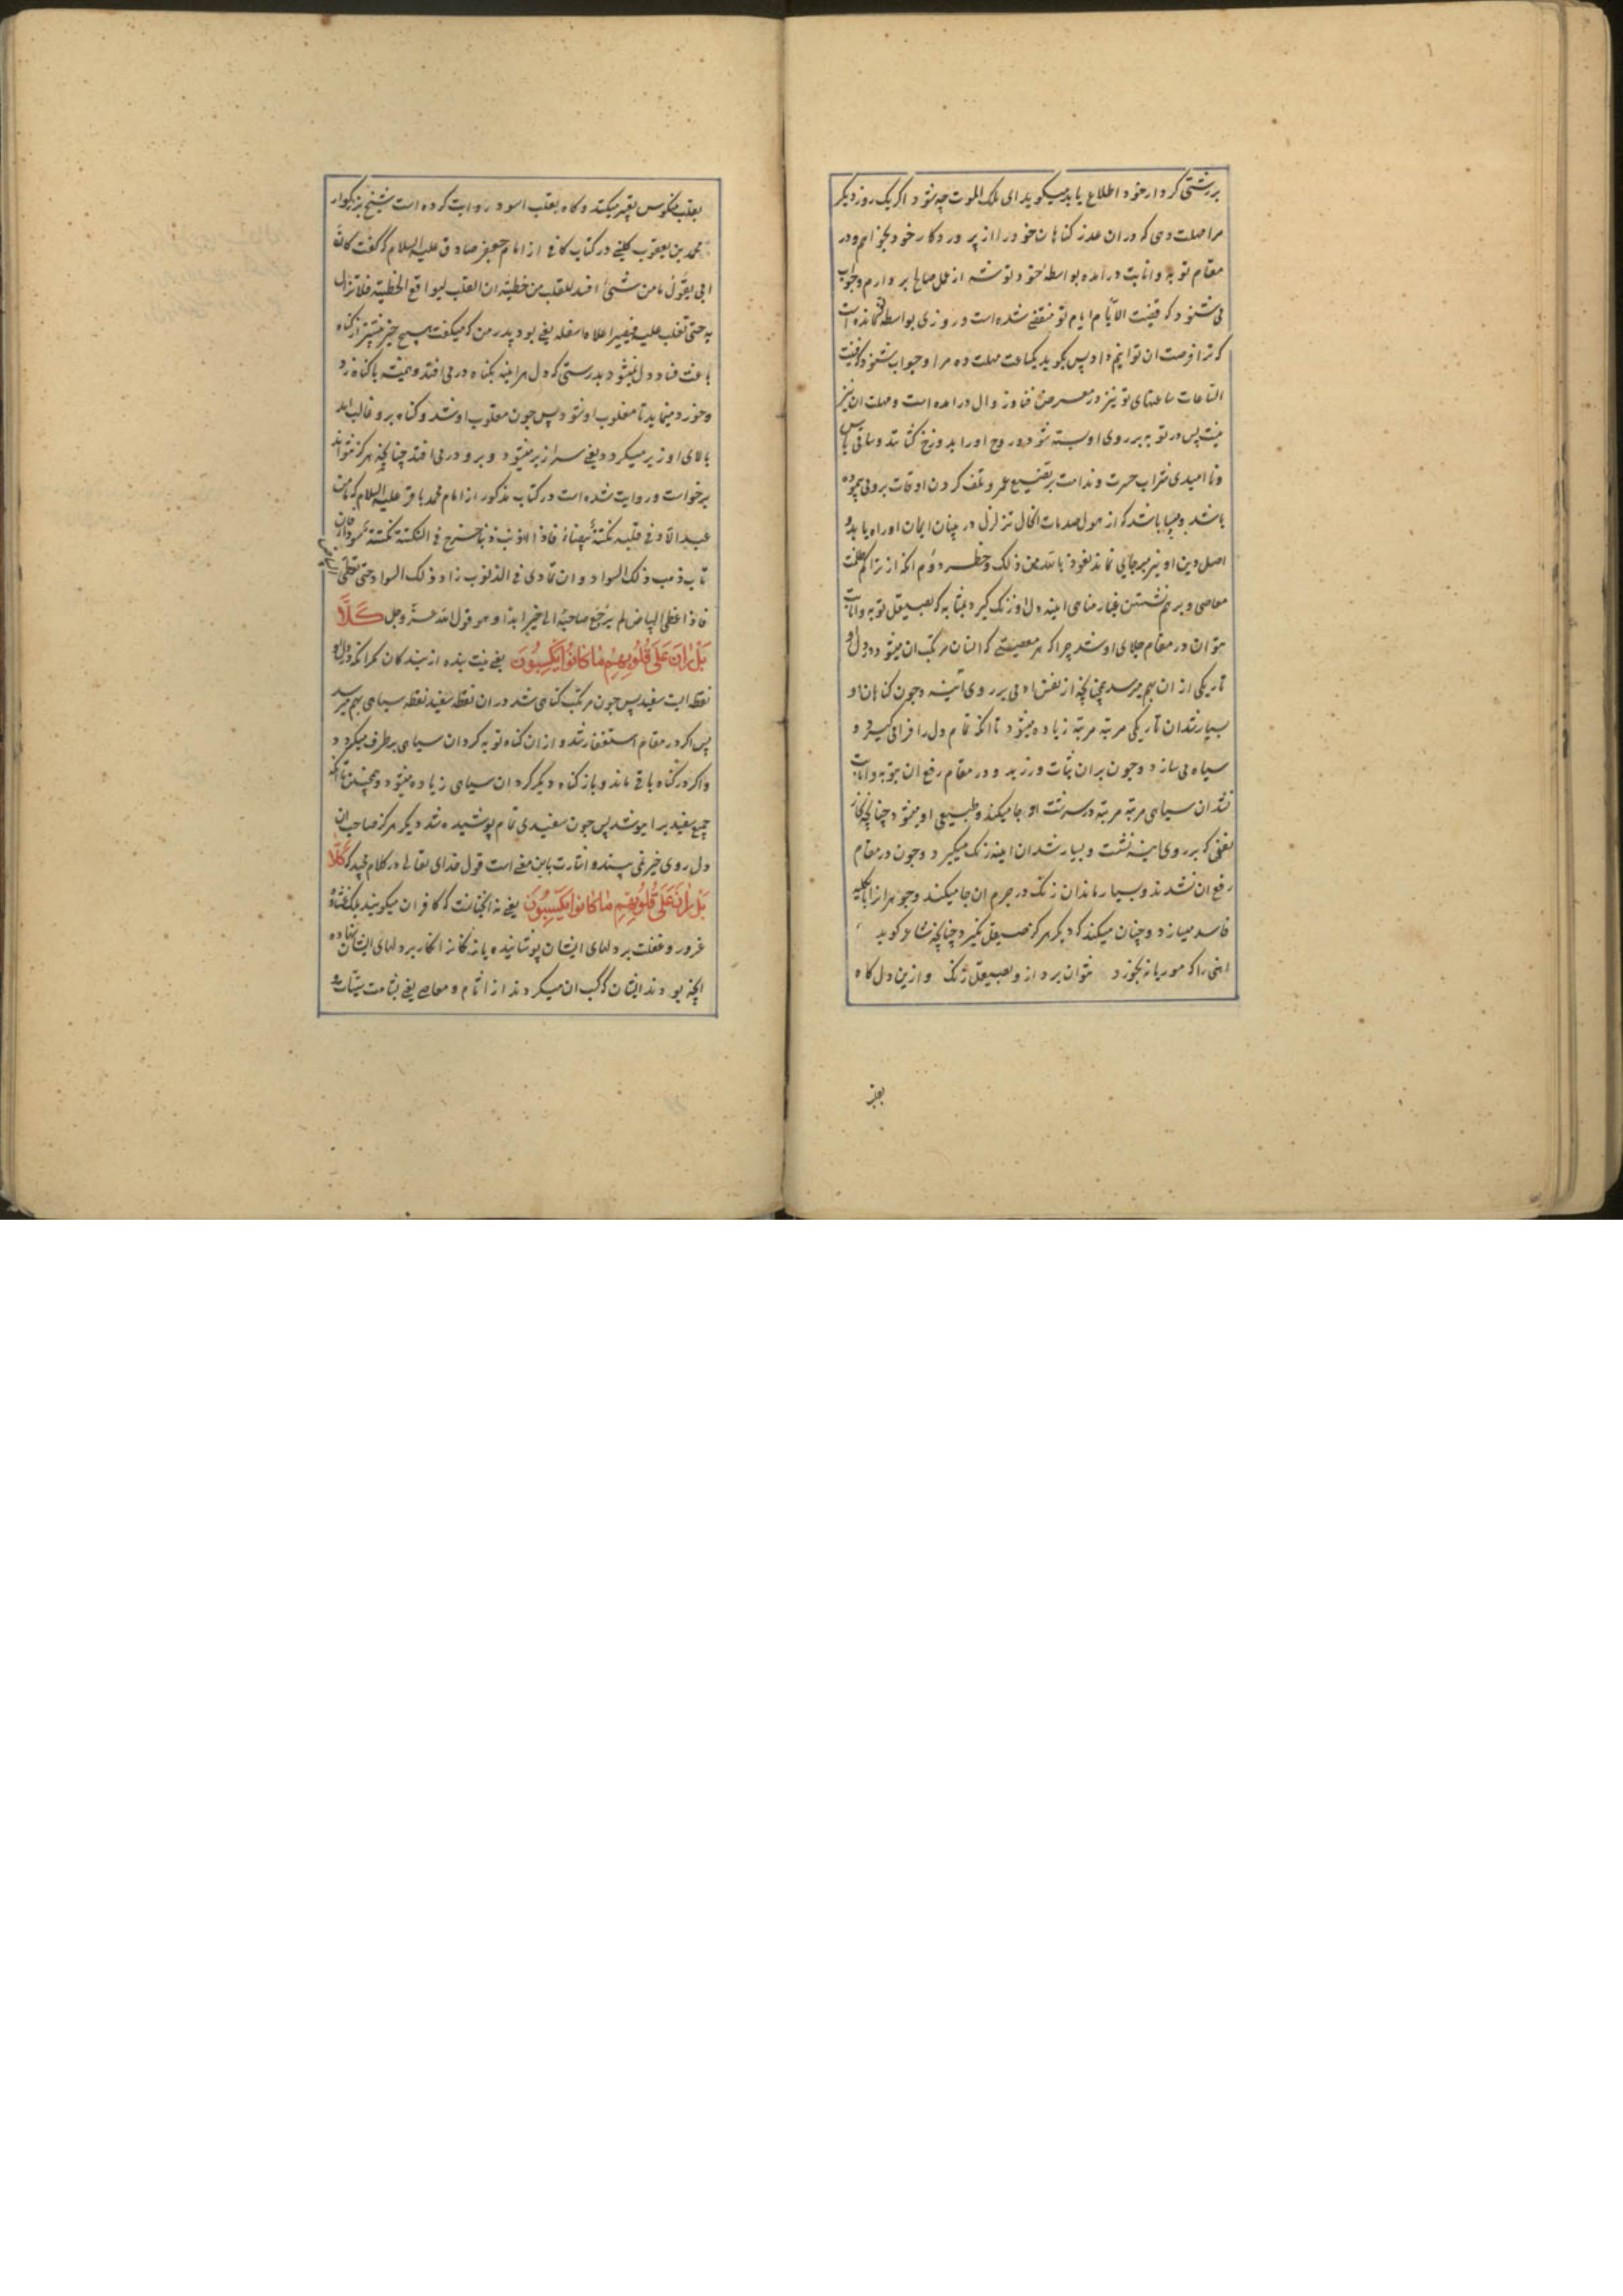 بر زشتی کردار خود اطلاع یابد میکوید ای ملک الموت چه شود اکر یک روز دیکر
مرا مهلت دهی که در ان عذر کناهان خود را از پروردکار خود بخواهم و در
مقام توبه و انابت در امده بواسطهٔ خود توشه از عمل صالح بردارم وجواب
می شنود که فنیت الایام ایام تو منقضی شده است و روزی بواسطه تو نمانده است
که ترا فرصت ان توانم داد پس بکوید یکساعت مهلت ده مرا و جواب شنود که فنیت
الساعات ساعتهای تو نیز در معرض فنا و زوال در امده است و مهلت ان نیز
نیست پس در توبه بر روی او بسته شود و روح او را بدوزخ کشاند و ساقی یاس
و نا امیدی شراب حسرت و ندامت بر تضییع عمر و تلف کردن اوقات برو می پیموده
باشد و بسیا باشد که از هول صدمات الحال تزلزل در بنیان ایمان او راه یابد و
اصل دین او نیز بر جای نماند نعوذ بالله من ذلک وخطر دوم انکه از تراکم ظلمت
معاصی و بر هم نشستن غبار مناهی اینه دل او زنک کیرد بمثابه که بصیقل توبه و انابت
نتوان در مقام جلای او شد چرا که هر معصیتی که انسان مرتکب ان میشود در دل او
تاریکی از ان بهم میرسد همچنانچه از نفس ادمی بر روی آئینه و چون کناهان او
بسیار شد ان تاریکی مرتبه مرتبه زیاده میشود تا انکه تمام دل را فرا می کیرد و
سیاه می سازد و چون بر ان ثبات ورزید و در مقام رفع ان بتوبه و انابت
نشد ان سیاهی مرتبه مرتبه در سرشت او جا میکند و طبیعی او میشود چنانچه بخار
نفسی که بر روی اینه نشست و بسیار شد ان اینه زنک میکیرد و چون در مقام
رفع ان نشدند و بسیار ماند ان زنک در جرم ان جا میکند و جوهر انرا بالکلیه
فاسد میسازد و چنان میکند که دیکر هرکز صیقل نکیرد چنانچه شاعر کوید
اهنی را که موریانه بخورد نتوان برد ازو بصیقل زنک و ازین دل کاه
بقلب
بقلب منکوس تعبیر میکنند و کاه بقلب اسود روایت کرده است شیخ بزرکوار
محمد بن یعقوب کلینی در کتاب کافی از امام جعفر صادق علیه السلام که گفت کان
ابی یقول ما من شیئ افسد للقلب من خطیئة ان القلب لیواقع الخطیئة فلا تزال
به حتی تغلب علیه فیصیر اعلاه اسفله یعنی بود پدر من که میکفت هیچ چیز بیشتر از کناه
باعث فساد دل نمیشود بدرستی که دل هر اینه بکناه در می افتد و همیشه با کناه زد
و خورد مینماید تا مغلوب او شود پس چون مغلوب او شد و کناه برو غالب امد
بالای او زیر میکردد یعنی سرازیر میشود و برو در می افتد چنانچه هرکز نتواند
برخواست و روایت شده است در کتاب مذکور از امام محمد باقر علیه السلام که ما من
عبد الا و فی قلبه نکتة بیضاء فاذا اذنب ذنبا خرج فی النکتة نکتة سوداء فان
تاب ذهب ذلک السواد و ان تمادی فی الذنوب زاد ذلک السواد حتی یغطی البیاض
فاذا غطی البیاض لم یرجع صاحبه الی خیر ابدا و هو قول الله عز وجل كَلَّا
بَلْ رَانَ عَلَى قُلُوبِهِمْ مَا كَانُوا يَكْسِبُونَ یعنی نیست بنده از بندکان مکر انکه در دل او
نقطه ایست سفید پس چون مرتکب کناهی شد در ان نقطه سفید نقطه سیاهی بهم میرسد
پس اکر در مقام استغفار شد و از ان کناه توبه کرد ان سیاهی برطرف میکردد
و اکر در کناه باقی ماند و باز کناه دیکر کرد ان سیاهی زیاده میشود و همچنین تا انکه
جمیع سفید را بپوشد پس چون سفیدی تمام پوشیده شد دیکر هرکز صاحب ان
دل روی خیر نمی بیند و اشارت باین معنی است قول خدای تعالی در کلام مجید که كَلَّا
بَلْ رَانَ عَلَى قُلُوبِهِمْ مَا كَانُوا يَكْسِبُونَ یعنی نه انچنانست که کافران میکویند بلکه غشاوهٔ
غرور و غفلت بر دلهای ایشان پوشانیده یا زنکار انکار بر دلهای ایشان نهاده
انچه بودند ایشان که کسب ان میکردند از اثام و معاصی یعنی بشامت سیئات و